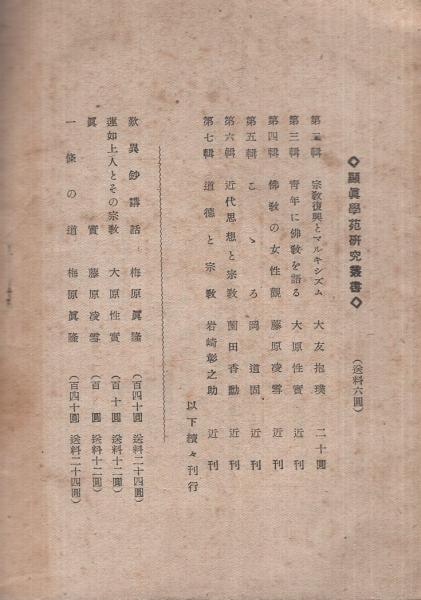 ◇顯眞學苑硏究叢書◇
（送料六圓）
第二輯 宗敎復興とマルキシズム 大友抱璞 二十圓
第三輯 靑年に佛敎を語る 大原性實 近刊
第四輯 佛敎の女性觀 藤原凌雪 近刊
第五輯 こゝろ 岡道固 近刊
第六輯 近代思想と宗敎 薗田香勳 近刊
第七輯 道德と宗敎 岩崎彰之助 近刊
以下續々刊行
歎異鈔講話 梅原眞隆 （百四十圓 送料二十四圓）
蓮如上人とその宗敎 大原性實 （百十圓 送料十二圓）
眞實 藤原凌雪 （百圓 送料十二圓）
一條の道 梅原眞隆 （百四十圓 送料二十四圓）